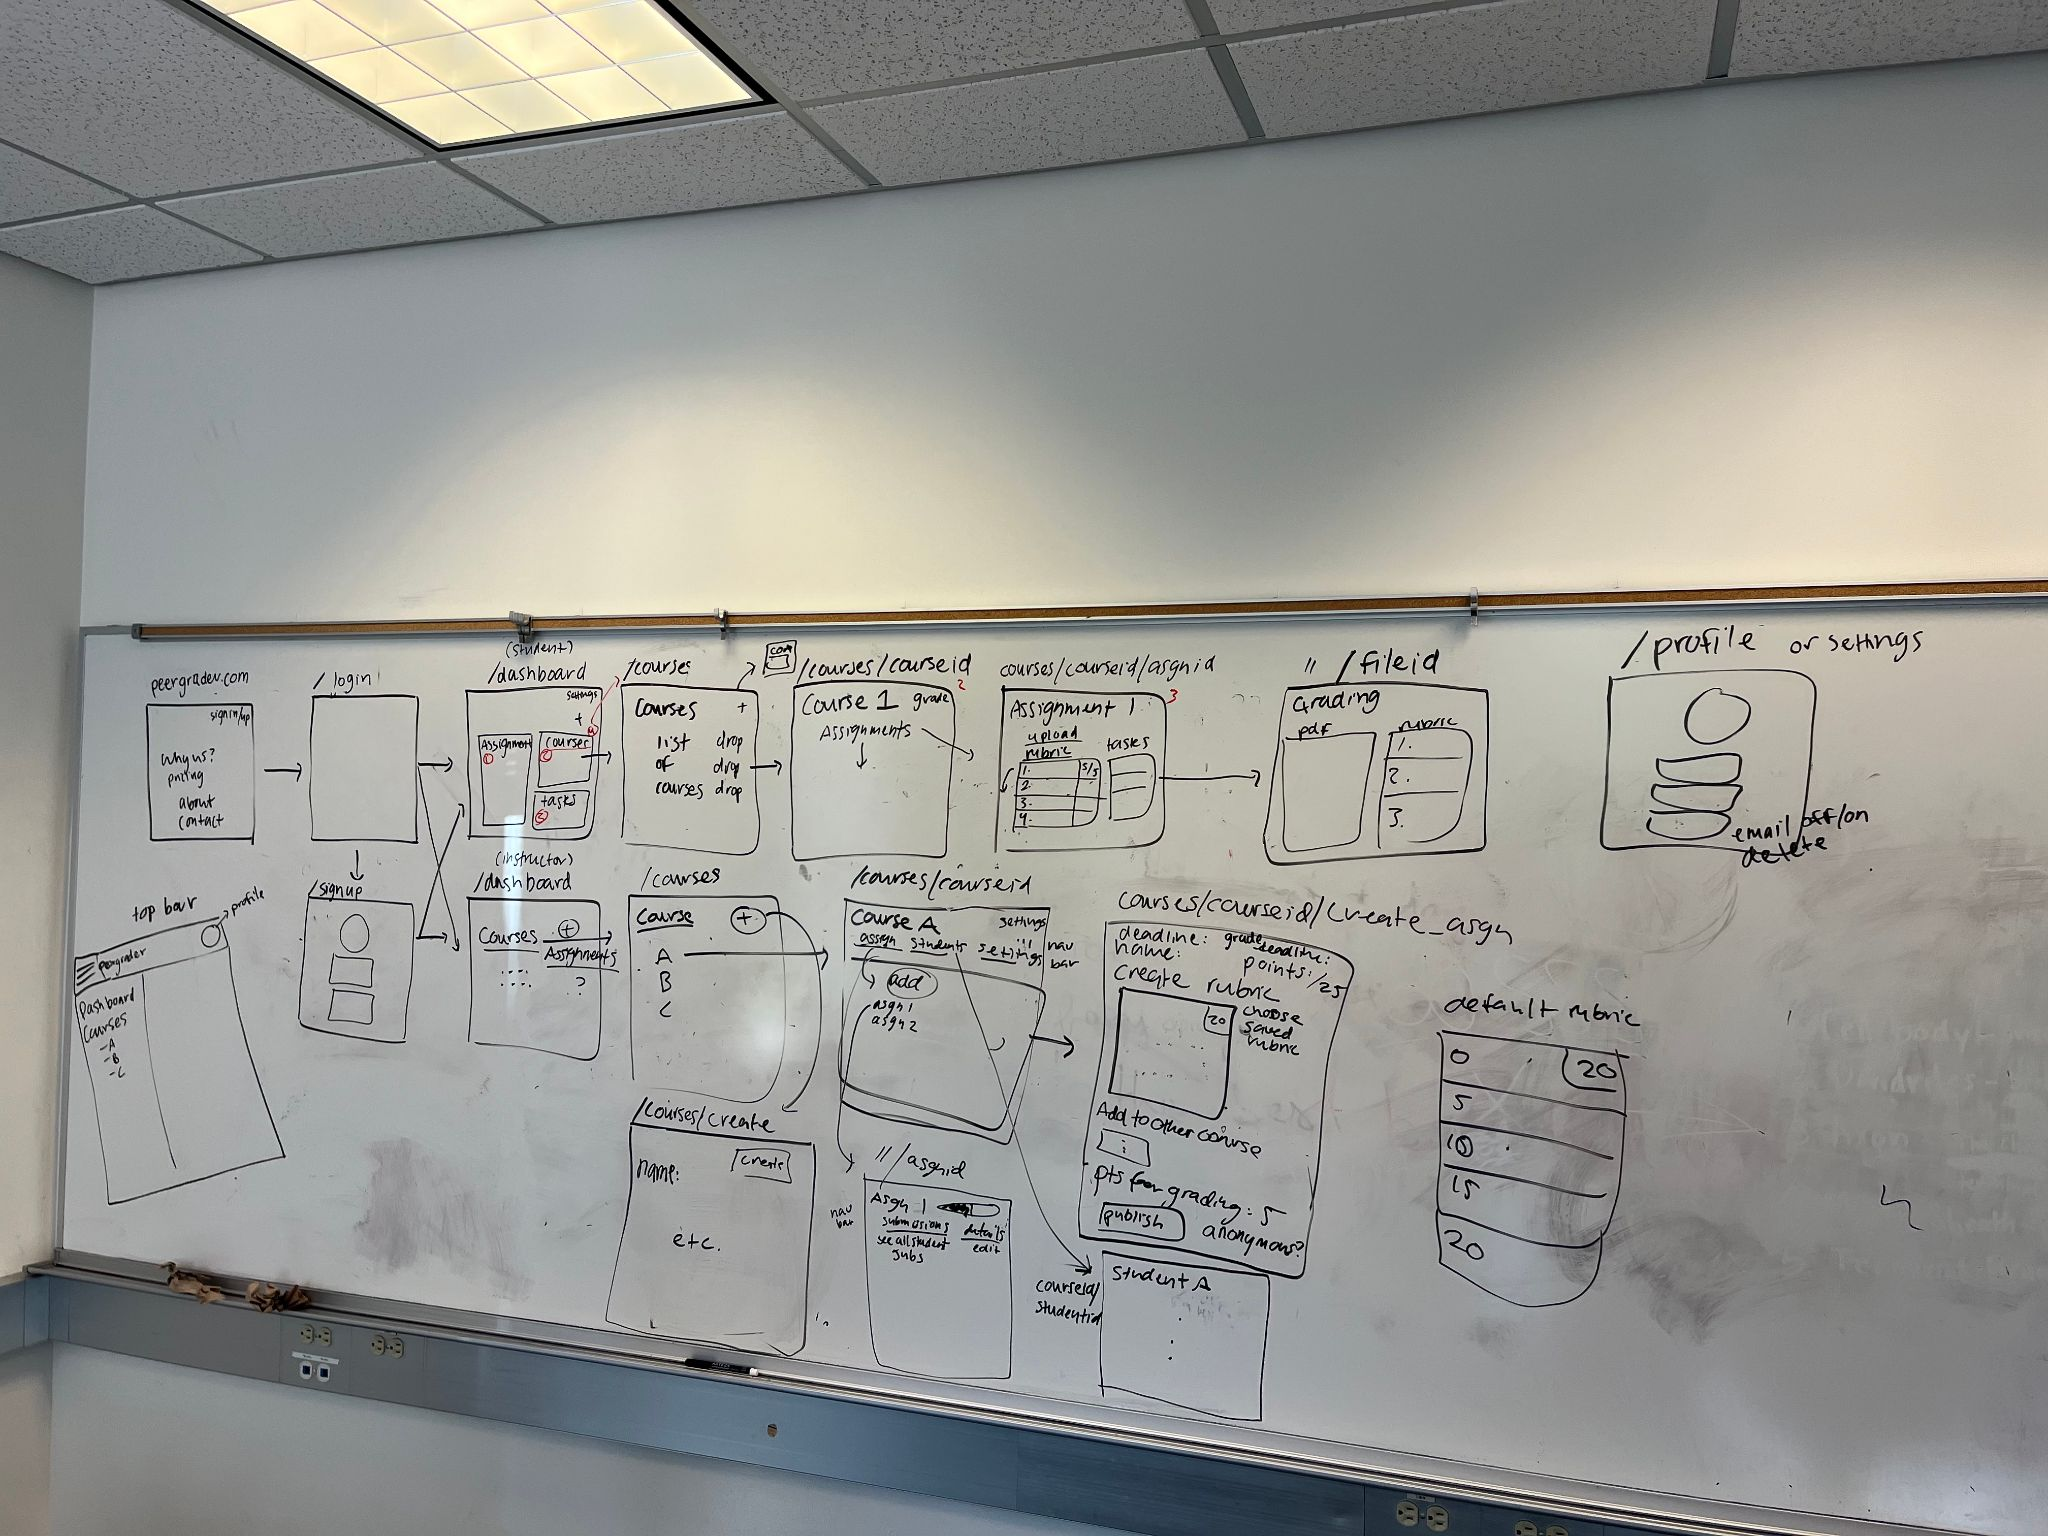 peergrader.com
signin/up
Why us?
pricing
about
contact
/login
/signup
(student)
/dashboard
settings
+
Assignment
1
courses
2
4
tasks
3
/courses
courses +
list drop
of drop
courses drop
/courses/courseid
2
Course 1 grade
Assignments
courses/courseid/asgnid
3
Assignment 1
upload
rubric
tasks
1. 5/5
2.
3.
4.
" /fileid
Grading
pdf
rubric
1.
2.
3.
/profile or settings
email off/on
delete
top bar
profile
peergrader
Dashboard
Courses
-A
-B
-C
(instructor)
/dashboard
Courses +
Assignments
?
/courses
Course +
A
B
C
/courses/create
name: create
etc.
/courses/courseid
Course A settings
assign students settings
nav
bar
add
asgn1
asgn2
" /asgnid
nav
bar
Asgn 1
submissions details
see all student edit
subs
courses/courseid/create_asgn
deadline: grade deadline:
name: points: /25
Create rubric
20
choose
saved
rubric
Add to other course
pts for grading: 5
publish anonymous?
studentid
Student A
default rubric
0 20
5
10
15
20